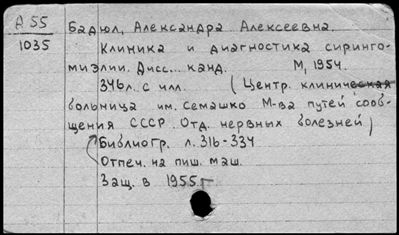 А 55
1035
Бадюл, Александра Алексеевна.
Клиника и диагностика сиринго-
миэлии. Дисс... канд. М, 1954.
346л. с илл. (Центр. клиническая
больница им. Семашко М-ва путей сооб-
щения СССР. Отд. нервных болезней)
Библиогр. л. 316-334
Отпеч. на пиш. маш.
Защ. в 1955 г